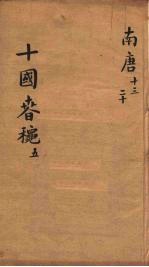 南唐十三
二十
十國春穐五